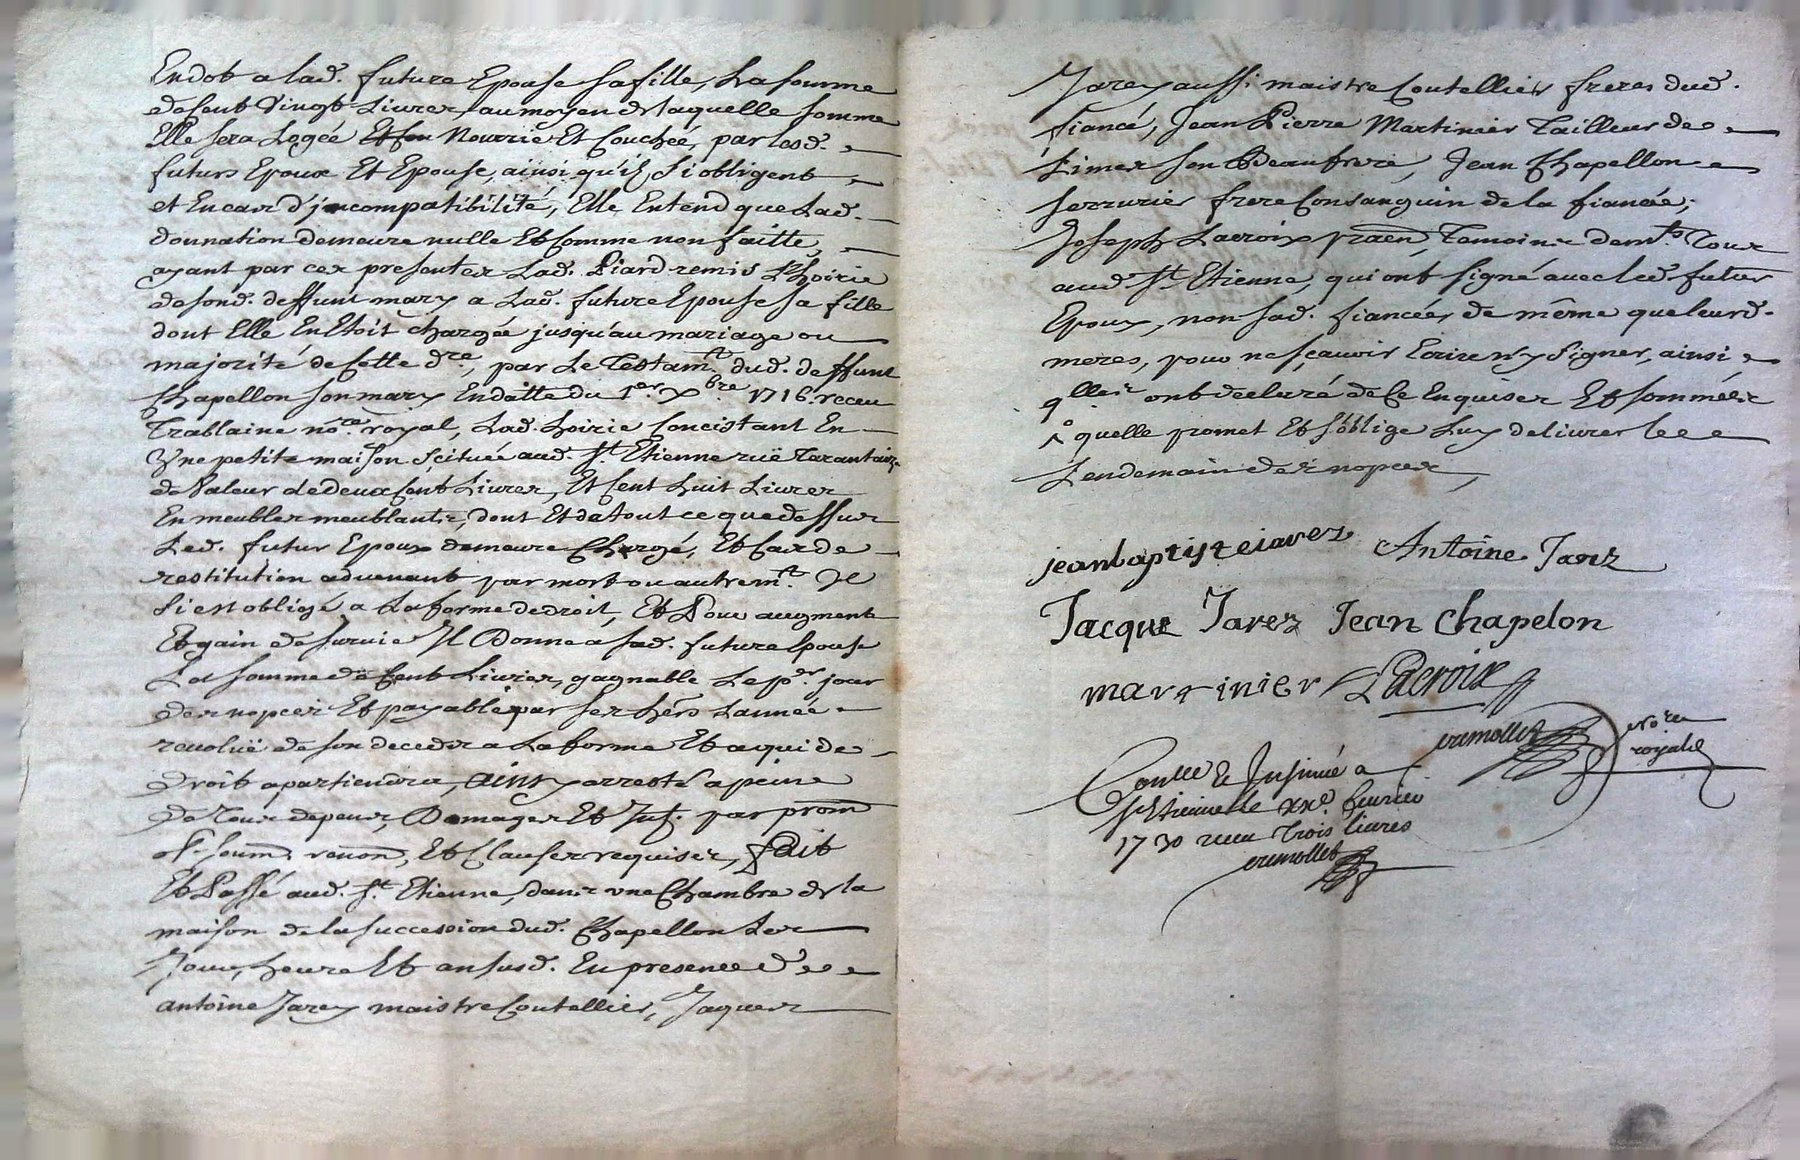 Endot a lad. future Epouse sa fille, La somme
de Cent Vingt Livres, au moyen de laquelle somme
Elle sera Logée Et Nourrie Et Couchée, par lesd.
futurs Epoux Et Epouse, ainsi qu'ils s'i obligent
et En cas d'jncompatibilité, Elle Entend que Lad.
donnation demeure nulle Et Comme non faitte,
ayant par ces presentes Lad. Liard remis L'hoirie
de sond. deffunt mary a Lad. future Epouse sa fille
dont Elle En Etoit chargée jusqu'au mariage ou
majorité de Cette d.re, par Le Testam.t dud. deffunt
Chapellon son mary En datte du 1.er X.bre 1716. receu
Trablaine no.re royal, Lad. hoirie Concistant En
Vne petite maison scituée aud. S.t Etienne ruë Tarantaize
de Valeur de deux Cent Livres, Et Cent huit Livres
En meubles meublants, dont Et de tout ce que dessus
Led. futur Epoux demeure Chargé, Et Cas de
restitution advenant par mort ou autrem.t Il
s'i est obligé a La forme de droit, Et Pour augment
Et gain de survie Il Donne a sad. future Epouse
La somme de Cent Livres, gagnable Le p.r jour
des nopces Et payable par ses hers L'année
revoluë de son decedz a La forme Et a qui de
droit apartiendra, ainsy arresté a peine
de Tous depens, Domages Et Int. par prom
obl. soum. renon, Et Clauses requises, Fait
Et Passé aud. S.t Etienne, dans vne Chambre de la
maison de la succession dud. Chapellon Les
Jour, heure Et an susd. En presence de
antoine Jarey maistre Coutellier, Jaques
Jarey aussi maistre Coutellier freres dud.
fiancé, Jean Pierre Martinier Tailleur de
Limes son Beaufrere, Jean Chapellon
serrurier frere Consanguin de la fiancée,
Joseph Lacroix praen, Temoins dem.ts Tous
aud. S.t Etienne, qui ont signé avec led. futur
Epoux, non sad. fiancée, de même que leurd.
meres, pour ne sçavoir Ecrire ny signer, ainsi
qlles ont declaré de Ce Enquises Et sommées
quelle promet Et s'oblige Luy delivrer le
Lendemain des nopces
jeanbaptiste iarez Antoine Jarez
Jacque Jarez Jean Chapelon
martinier Lacroix
No.re
royal
Conllé & Insinué a
S.t Etienne le xxe. fevrier
1730 receu Trois livres